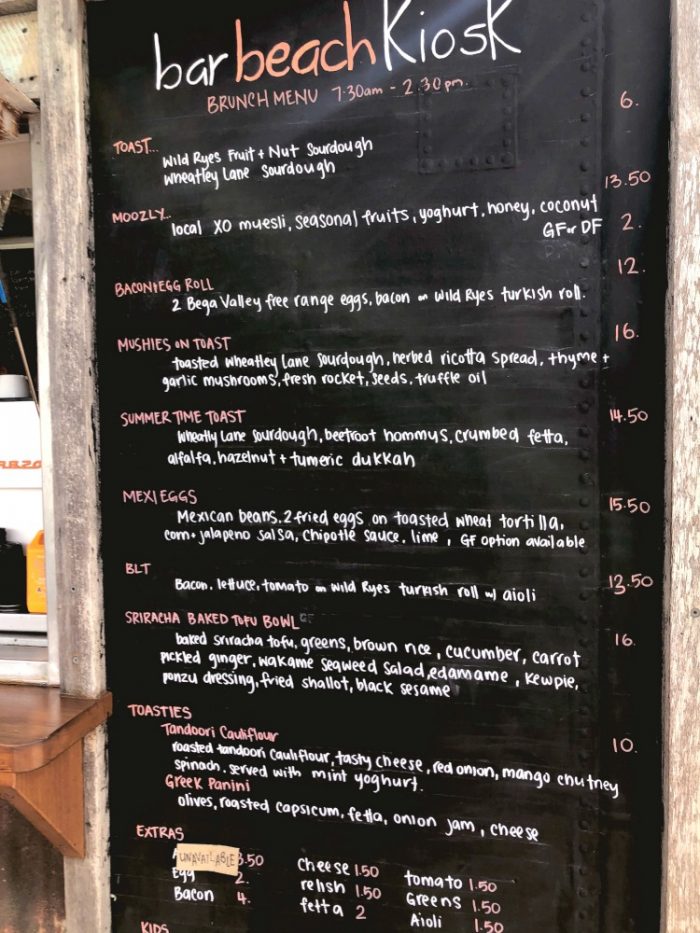 bar beach Kiosk
BRUNCH MENU 7:30am - 2:30pm.
TOAST... 6.
Wild Ryes Fruit + Nut Sourdough
Wheatley Lane Sourdough
MOOZLY... 13.50
local XO muesli, seasonal fruits, yoghurt, honey, coconut
GF or DF 2.
BACON+EGG ROLL 12.
2 Bega Valley free range eggs, bacon on Wild Ryes turkish roll.
MUSHIES ON TOAST 16.
toasted Wheatley Lane Sourdough, herbed ricotta spread, thyme +
garlic mushrooms, fresh rocket, seeds, truffle oil
SUMMER TIME TOAST 14.50
Wheatly Lane Sourdough, beetroot hommus, crumbed fetta,
alfalfa, hazelnut + tumeric dukkah
MEXI EGGS 15.50
Mexican beans, 2 fried eggs on toasted wheat tortilla,
corn + jalapeno salsa, chipotle sauce, lime, GF option available
BLT 13.50
Bacon, lettuce, tomato on Wild Ryes turkish roll w/ aioli
SRIRACHA BAKED TOFU BOWL GF 16.
baked sriracha tofu, greens, brown rice, cucumber, carrot
pickled ginger, wakame seaweed salad, edamame, kewpie,
ponzu dressing, fried shallot, black sesame
TOASTIES 10.
Tandoori Cauliflour
roasted tandoori cauliflour, tasty cheese, red onion, mango chutney
spinach, served with mint yoghurt.
Greek Panini
olives, roasted capsicum, fetta, onion jam, cheese
EXTRAS
UNAVAILABLE 3.50 cheese 1.50 tomato 1.50
Egg 2. relish 1.50 Greens 1.50
Bacon 4. fetta 2 Aioli 1.50
KIDS